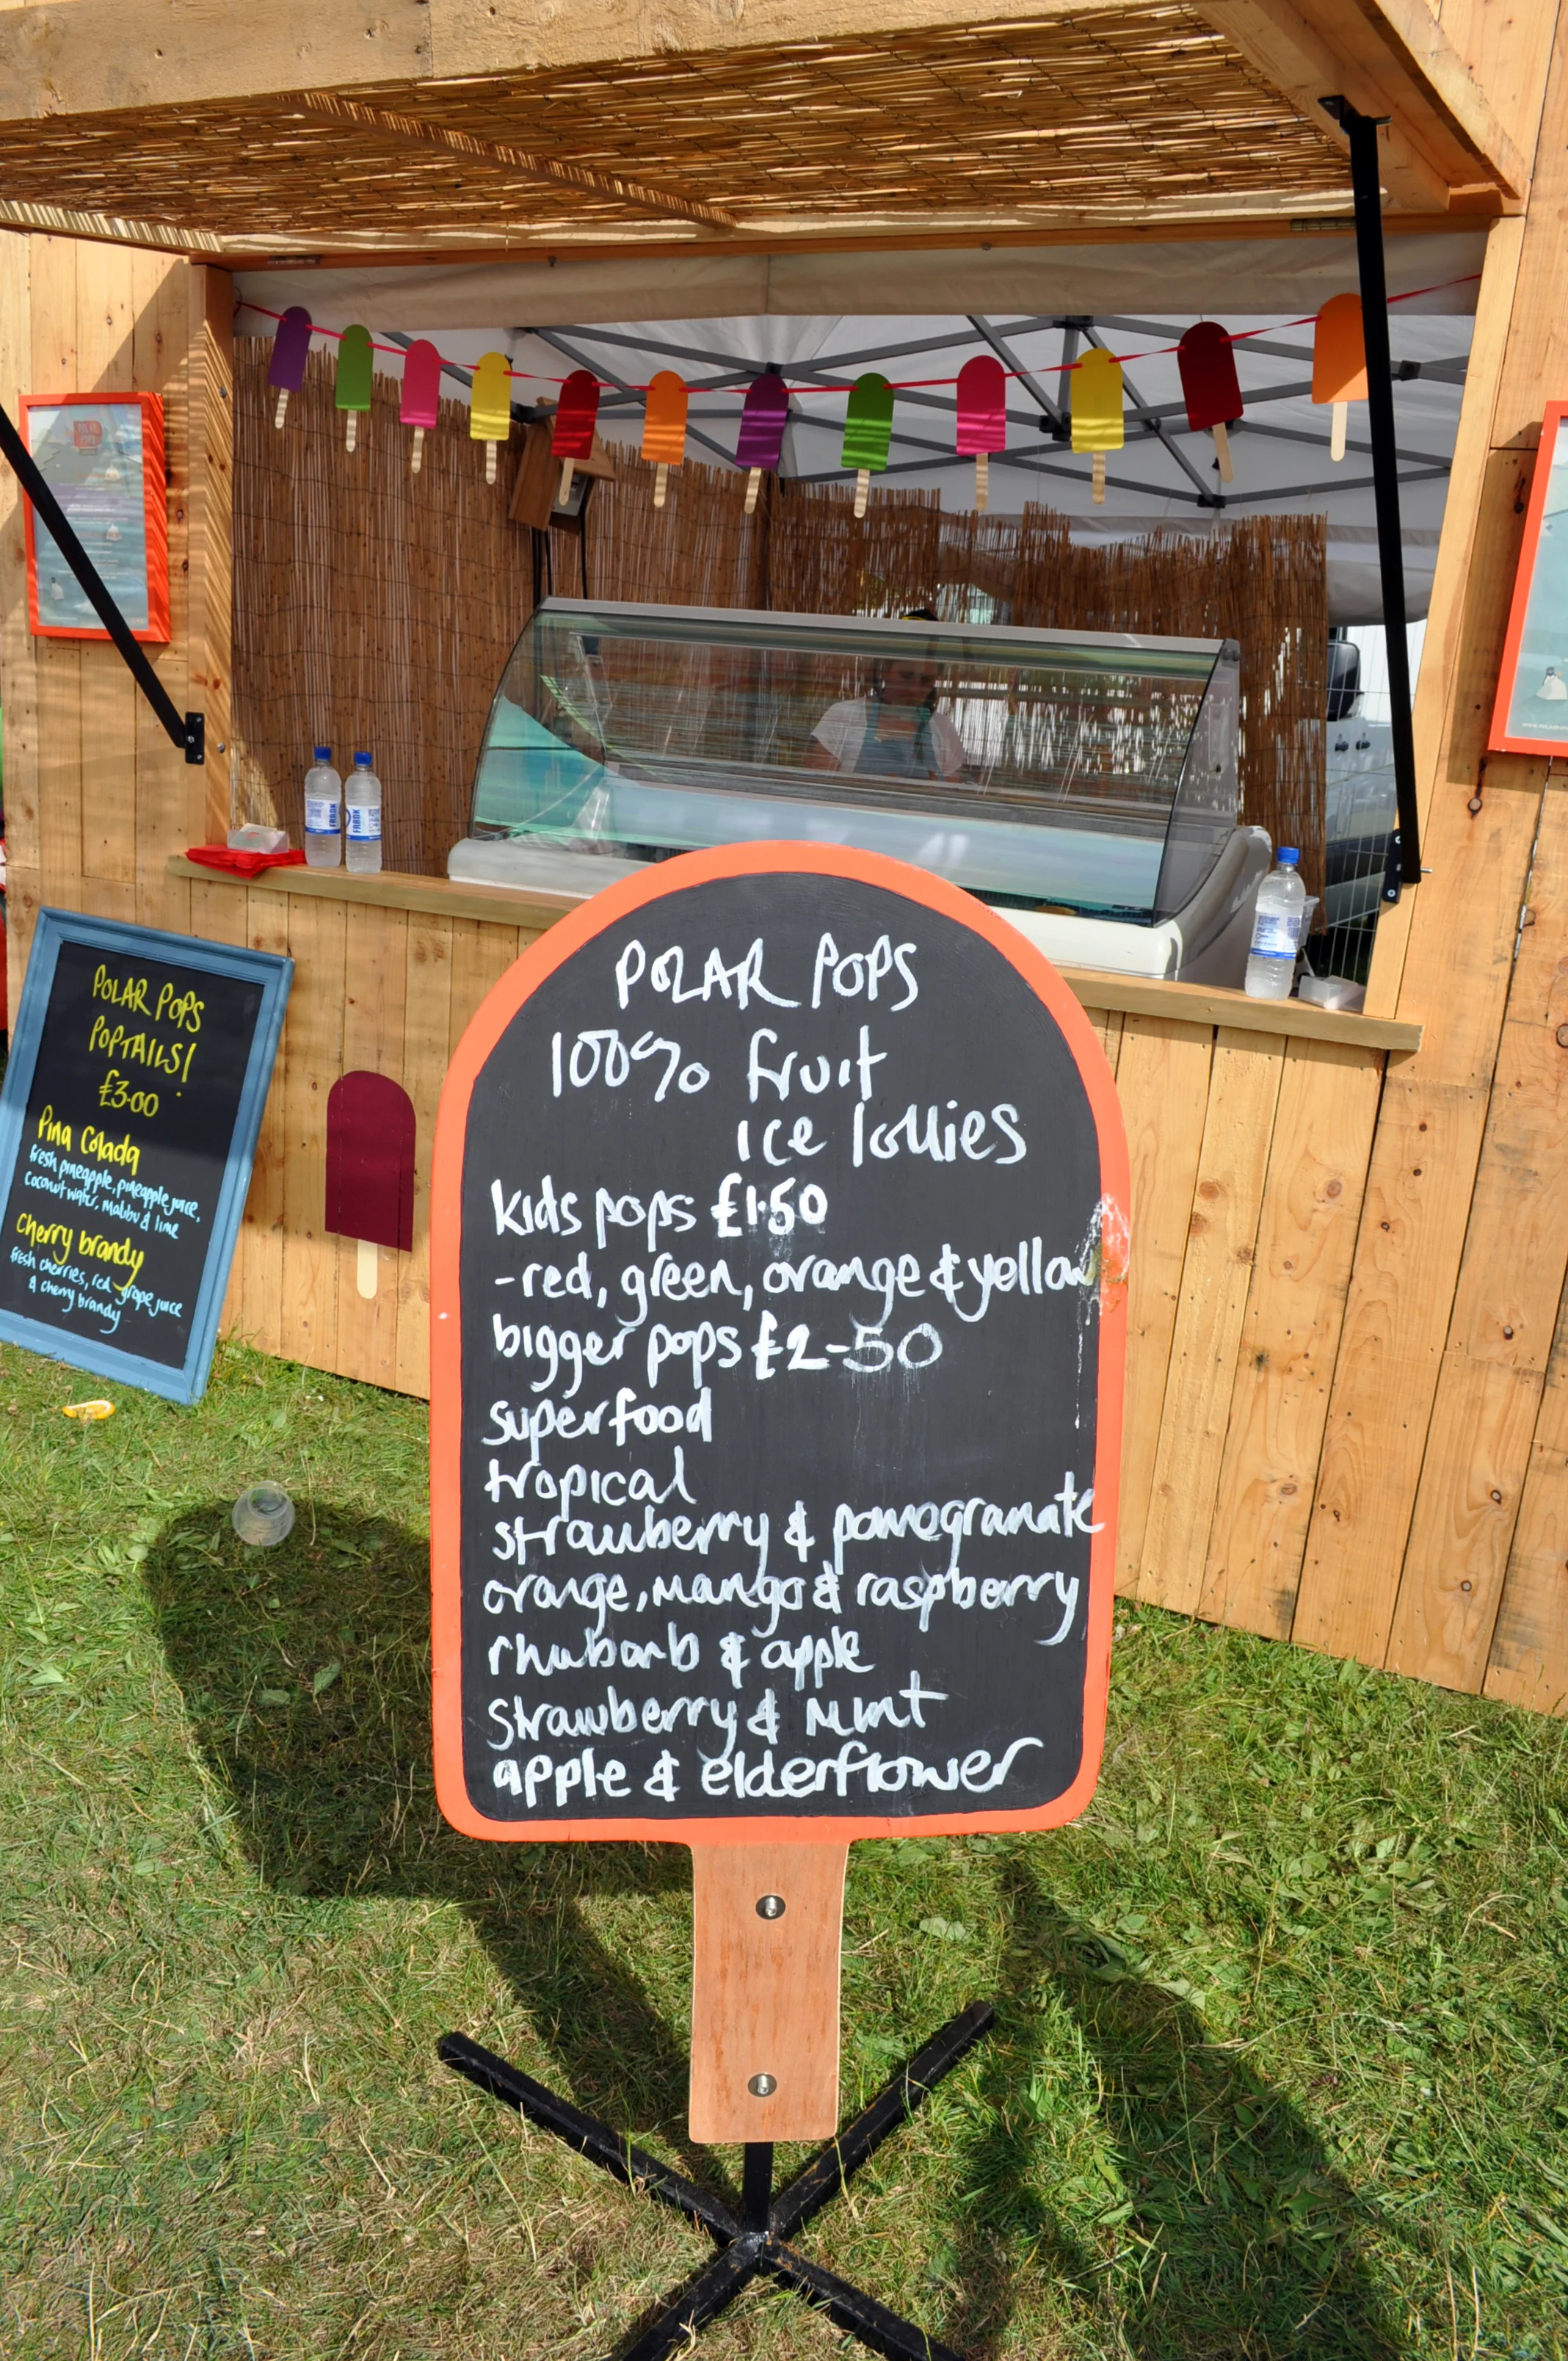 POLAR POPS
100% fruit
ice lollies
kids pops £1.50
-red, green, orange & yellow
bigger pops £2-50
superfood
tropical
strawberry & pomegranate
orange, mango & raspberry
rhubarb & apple
strawberry & mint
apple & elderflower
POLAR POPS
POPTAILS!
£3.00
Pina Colada
fresh pineapple, pineapple juice,
coconut water, malibu & lime
cherry brandy
fresh cherries, red grape juice
& cherry brandy
FRANK
FRANK